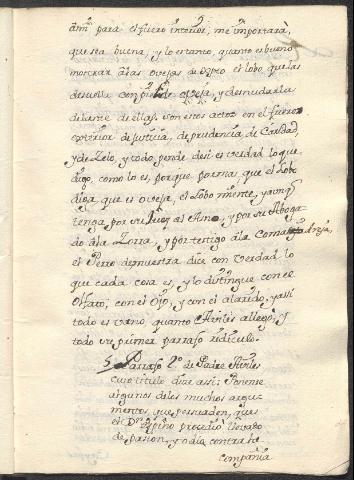 am.r para el fuero interior, me importarà,
que sea buena, y lo es tanto, quanto es bueno
mostrar àlas ovejas de Xpto el lobo que las
desuella con piel de oveja, y desnudarla
delante de ellas. Son estos actos en el fuero
exterior de justicia, de prudencia, de Caridad,
y de Zelo, y todo pende de si es verdad lo que
digo, como lo es, porque por mas, que el Lobo
diga, que es oveja, el Lobo miente, y aunq.
tenga por su Juez al Asno, y por su Aboga-
do àla Zorra, y por testigo àla Comadreja,
el Perro demuestra, dice con verdad lo
que cada cosa es, y lo distingue con el
Olfato, con el Ojo, y con el alarido, y assi
todo es vano quanto Aviles allegò, y
todo su primer parrafo ridiculo.
§ Parrafo 2.º de Padre Aviles
cuio titulo dice assi: Ponense
algunos de los muchos argu-
mentos, que persuaden, que
el D.r Espino procediò llevado
de passion, y odio contra la
Compañia